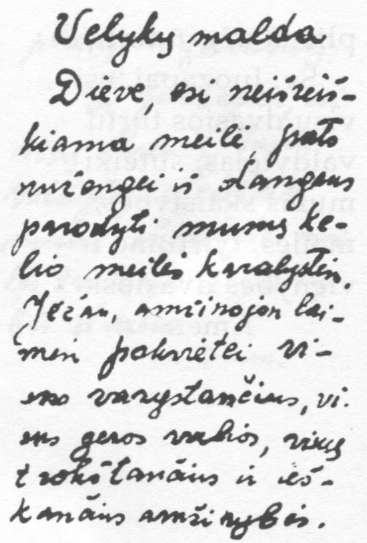 Velykų malda
Dieve, esi neišreiš-
kiama meilė, pats
nužengei iš dangaus
parodyti mums ke-
lio meilės karalystėn.
Jėzau, amžinojon lai-
mėn pakvietei vi-
sus vargstančius, vi-
sus geros valios, visus
trokštančius ir ieš-
kančius amžinybės.